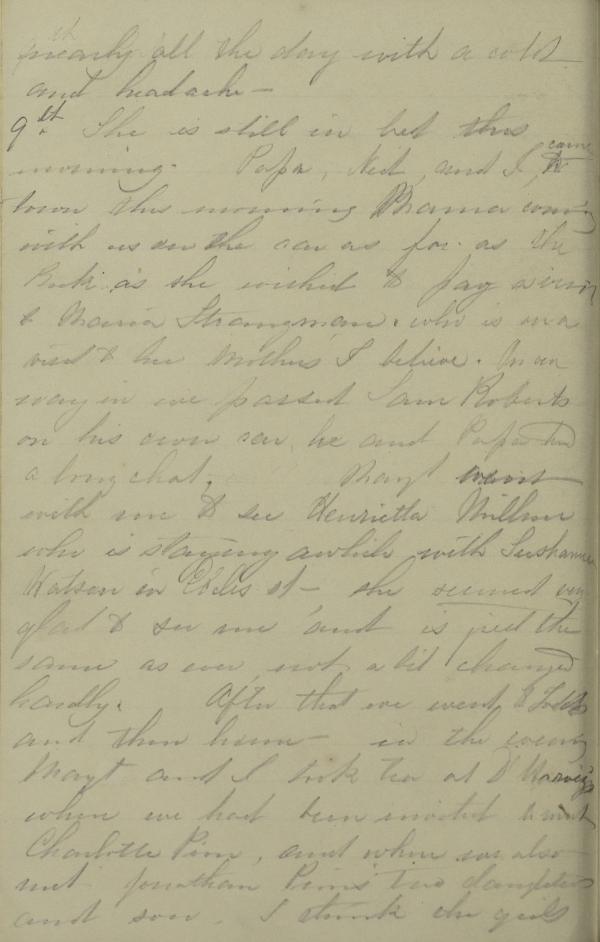 nearly all the day with a cold
and headache —
9th She is still in bed this
morning. Papa, Ned, and I, came to
town this morning Mama coming
with us on the car as far as the
as she wished to pay a visit
to Maria Strangman. who is on a
visit to her Mother's I believe. On our
way in we passed Sam Roberts
on his own car, he and Papa had
a long chat. Margt went
with me to see Henrietta
who is staying awhile with Sushanna
Watson in st — she seemed very
glad to see me and is just the
same as ever, not a bit changed
hardly. After that we went to
and then home — in the evening
Margt and I took tea at
where we had been invited to meet
Charlotte Pim, and where we also
met Jonathan Pim's two daughters
and son. I think the girls